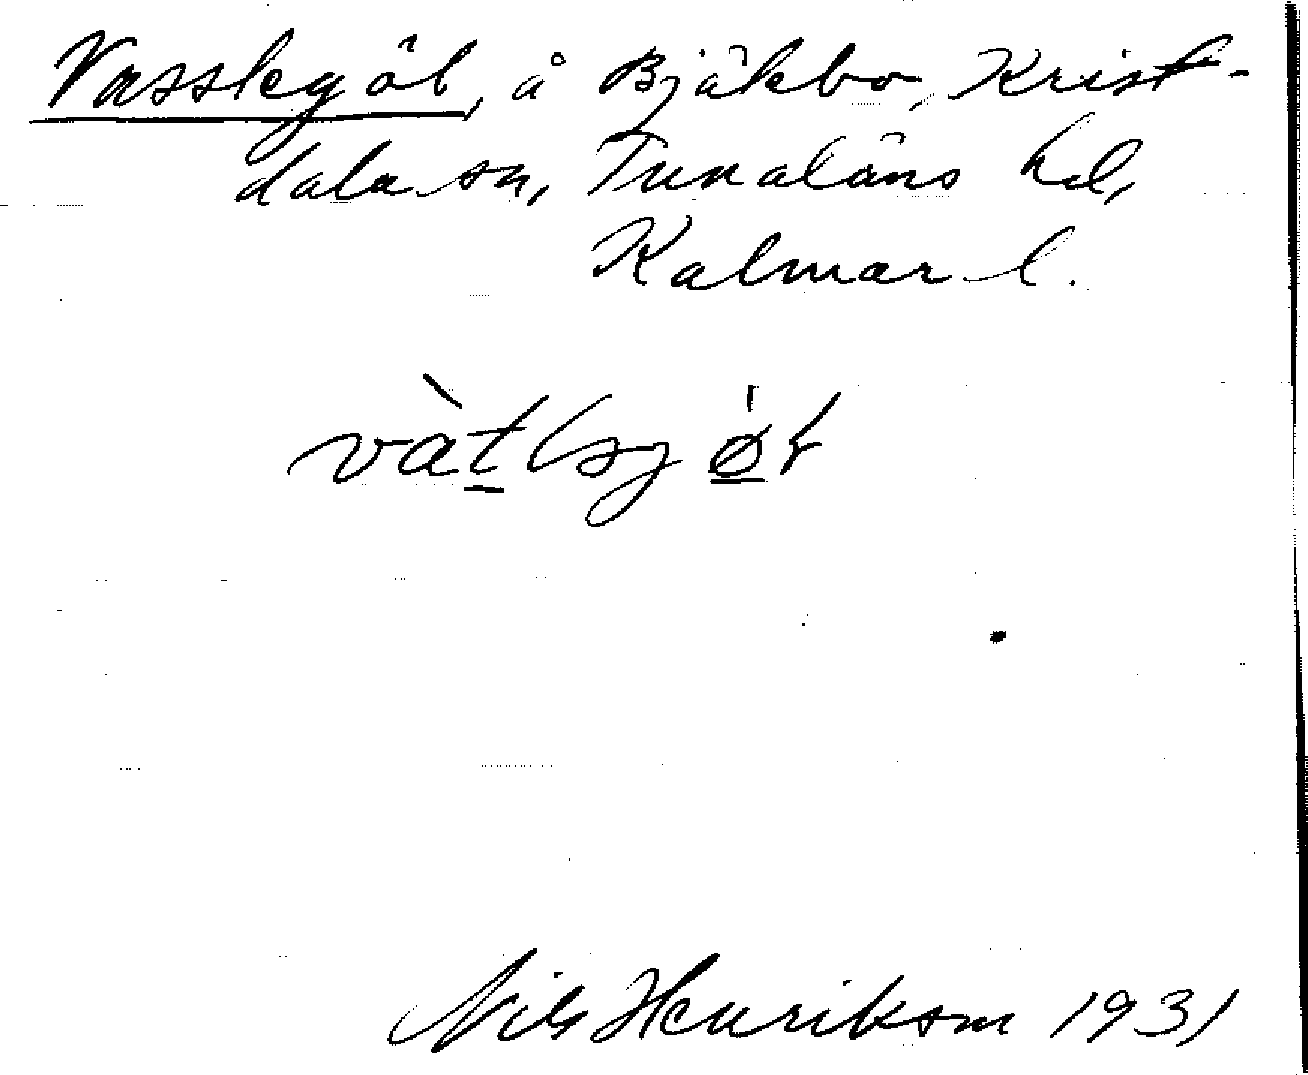 Vasslegöl, å Bjälebo, Krist-
dala sn, Tunaläns hd,
Kalmar l.
Nils Henrikson 1931